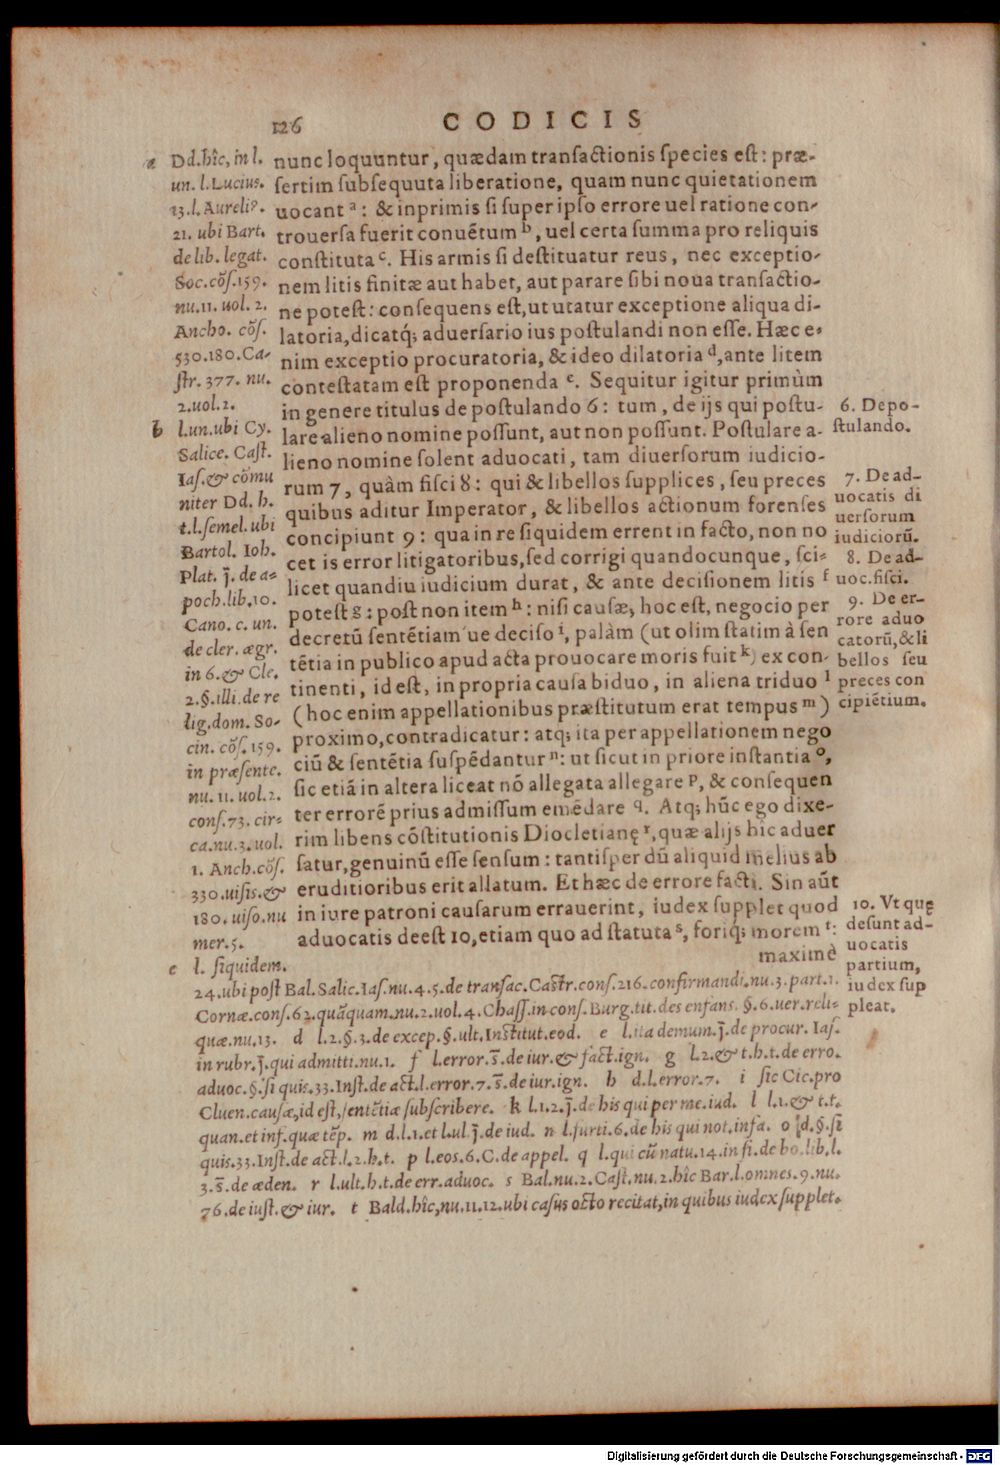 126
CODICIS
nunc loquuntur, quædam transactionis species est: præ-
sertim subsequuta liberatione, quam nunc quietationem
uocant a: & inprimis si super ipso errore uel ratione con-
trouersa fuerit conuẽtum b, uel certa summa pro reliquis
constituta c. His armis si destituatur reus, nec exceptio-
nem litis finitæ aut habet, aut parare sibi noua transactio-
ne potest: consequens est, ut utatur exceptione aliqua di-
latoria, dicatq́; aduersario ius postulandi non esse. Hæc e-
nim exceptio procuratoria, & ideo dilatoria d, ante litem
contestatam est proponenda e. Sequitur igitur primùm
in genere titulus de postulando 6: tum, de ijs qui postu-
lare alieno nomine possunt, aut non possunt. Postulare a-
lieno nomine solent aduocati, tam diuersorum iudicio-
rum 7, quàm fisci 8: qui & libellos supplices, seu preces
quibus aditur Imperator, & libellos actionum forenses
concipiunt 9: qua in re siquidem errent in facto, non no
cet is error litigatoribus, sed corrigi quandocunque, sci-
licet quandiu iudicium durat, & ante decisionem litis f
potest g: post non item h: nisi causæ, hoc est, negocio per
decretũ sentẽtiam ue deciso i, palàm (ut olim statim à sen
tẽtia in publico apud acta prouocare moris fuit k) ex con-
tinenti, id est, in propria causa biduo, in aliena triduo l
(hoc enim appellationibus præstitutum erat tempus m)
proximo, contradicatur: atq; ita per appellationem nego
ciũ & sentẽtia suspẽdantur n: ut sicut in priore instantia o,
sic etiã in altera liceat nõ allegata allegare p, & consequen
ter errorẽ prius admissum emẽdare q. Atq; hũc ego dixe-
rim libens cõstitutionis Diocletianę r, quæ alijs hîc aduer
satur, genuinũ esse sensum: tantisper dũ aliquid melius ab
eruditioribus erit allatum. Et hæc de errore facti. Sin aũt
in iure patroni causarum errauerint, iudex supplet quod
aduocatis deest 10, etiam quo ad statuta s, foriq́; morem t:
maximè
a Dd. hîc, in l.
un. l. Lucius.
13. l. Aureli9.
21. ubi Bart.
de lib. legat.
Soc. cõs. 159.
nu. 11. uol. 2.
Ancho. cõs.
530. 180. Ca-
str. 377. nu.
2. uol. 2.
b l. un. ubi Cy.
Salice. Cast.
Ias. & cõmu
niter Dd. h.
t. l. semel. ubi
Bartol. Ioh.
Plat. j̃. de a-
poch. lib. 10.
Cano. c. un.
de cler. ægr.
in 6. & Cle.
2. §. illi. de re
lig. dom. So-
cin. cõs. 159.
in præsente.
nu. 11. uol. 2.
cons. 73. cir-
ca. nu. 3. uol.
1. Anch. cõs.
330. uisis. &
180. uiso. nu
mer. 5.
c l. siquidem.
24. ubi post Bal. Salic. Ias. nu. 4. 5. de transac. Castr. cons. 216. confirmandi. nu. 3. part. 1.
Cornæ. cons. 62. quãquam. nu. 2. uol. 4. Chass. in cons. Burg. tit. des enfans. §. 6. uer. reli-
quæ. nu. 13. d l. 2. §. 3. de excep. §. ult. Institut. eod. e l. ita demum. j̃. de procur. Ias.
in rubr. j̃. qui admitti. nu. 1. f l. error. s̃. de iur. & fact. ign. g l. 2. & t. h. t. de erro.
aduoc. §. si quis. 33. Inst. de act. l. error. 7. s̃. de iur. ign. h d. l. error. 7. i sic Cic. pro
Cluen. causæ, id est, sentẽtiæ subscribere. k l. 1. 2. j̃. de his qui per me. iud. l l. 1. & t. t.
quan. et inf. quæ tẽp. m d. l. 1. et l. ul. j̃. de iud. n l. furti. 6. de his qui not. infa. o d. §. si
quis. 33. Inst. de act. l. 2. h. t. p l. eos. 6. C. de appel. q l. qui cũ natu. 14. in fi. de bo. lib. l.
3. s̃. de æden. r l. ult. h. t. de err. aduoc. s Bal. nu. 2. Cast. nu. 2. hîc Bar. l. omnes. 9. nu.
76. de iust. & iur. t Bald. hîc, nu. 11. 12. ubi casus octo recitat, in quibus iudex supplet.
6. De po-
stulando.
7. De ad-
uocatis di
uersorum
iudiciorũ.
8. De ad-
uoc. fisci.
9. De er-
rore aduo
catorũ, & li
bellos seu
preces con
cipiẽtium.
10. Vt quę
desunt ad-
uocatis
partium,
iudex sup
pleat.
Digitalisierung gefördert durch die Deutsche Forschungsgemeinschaft - DFG